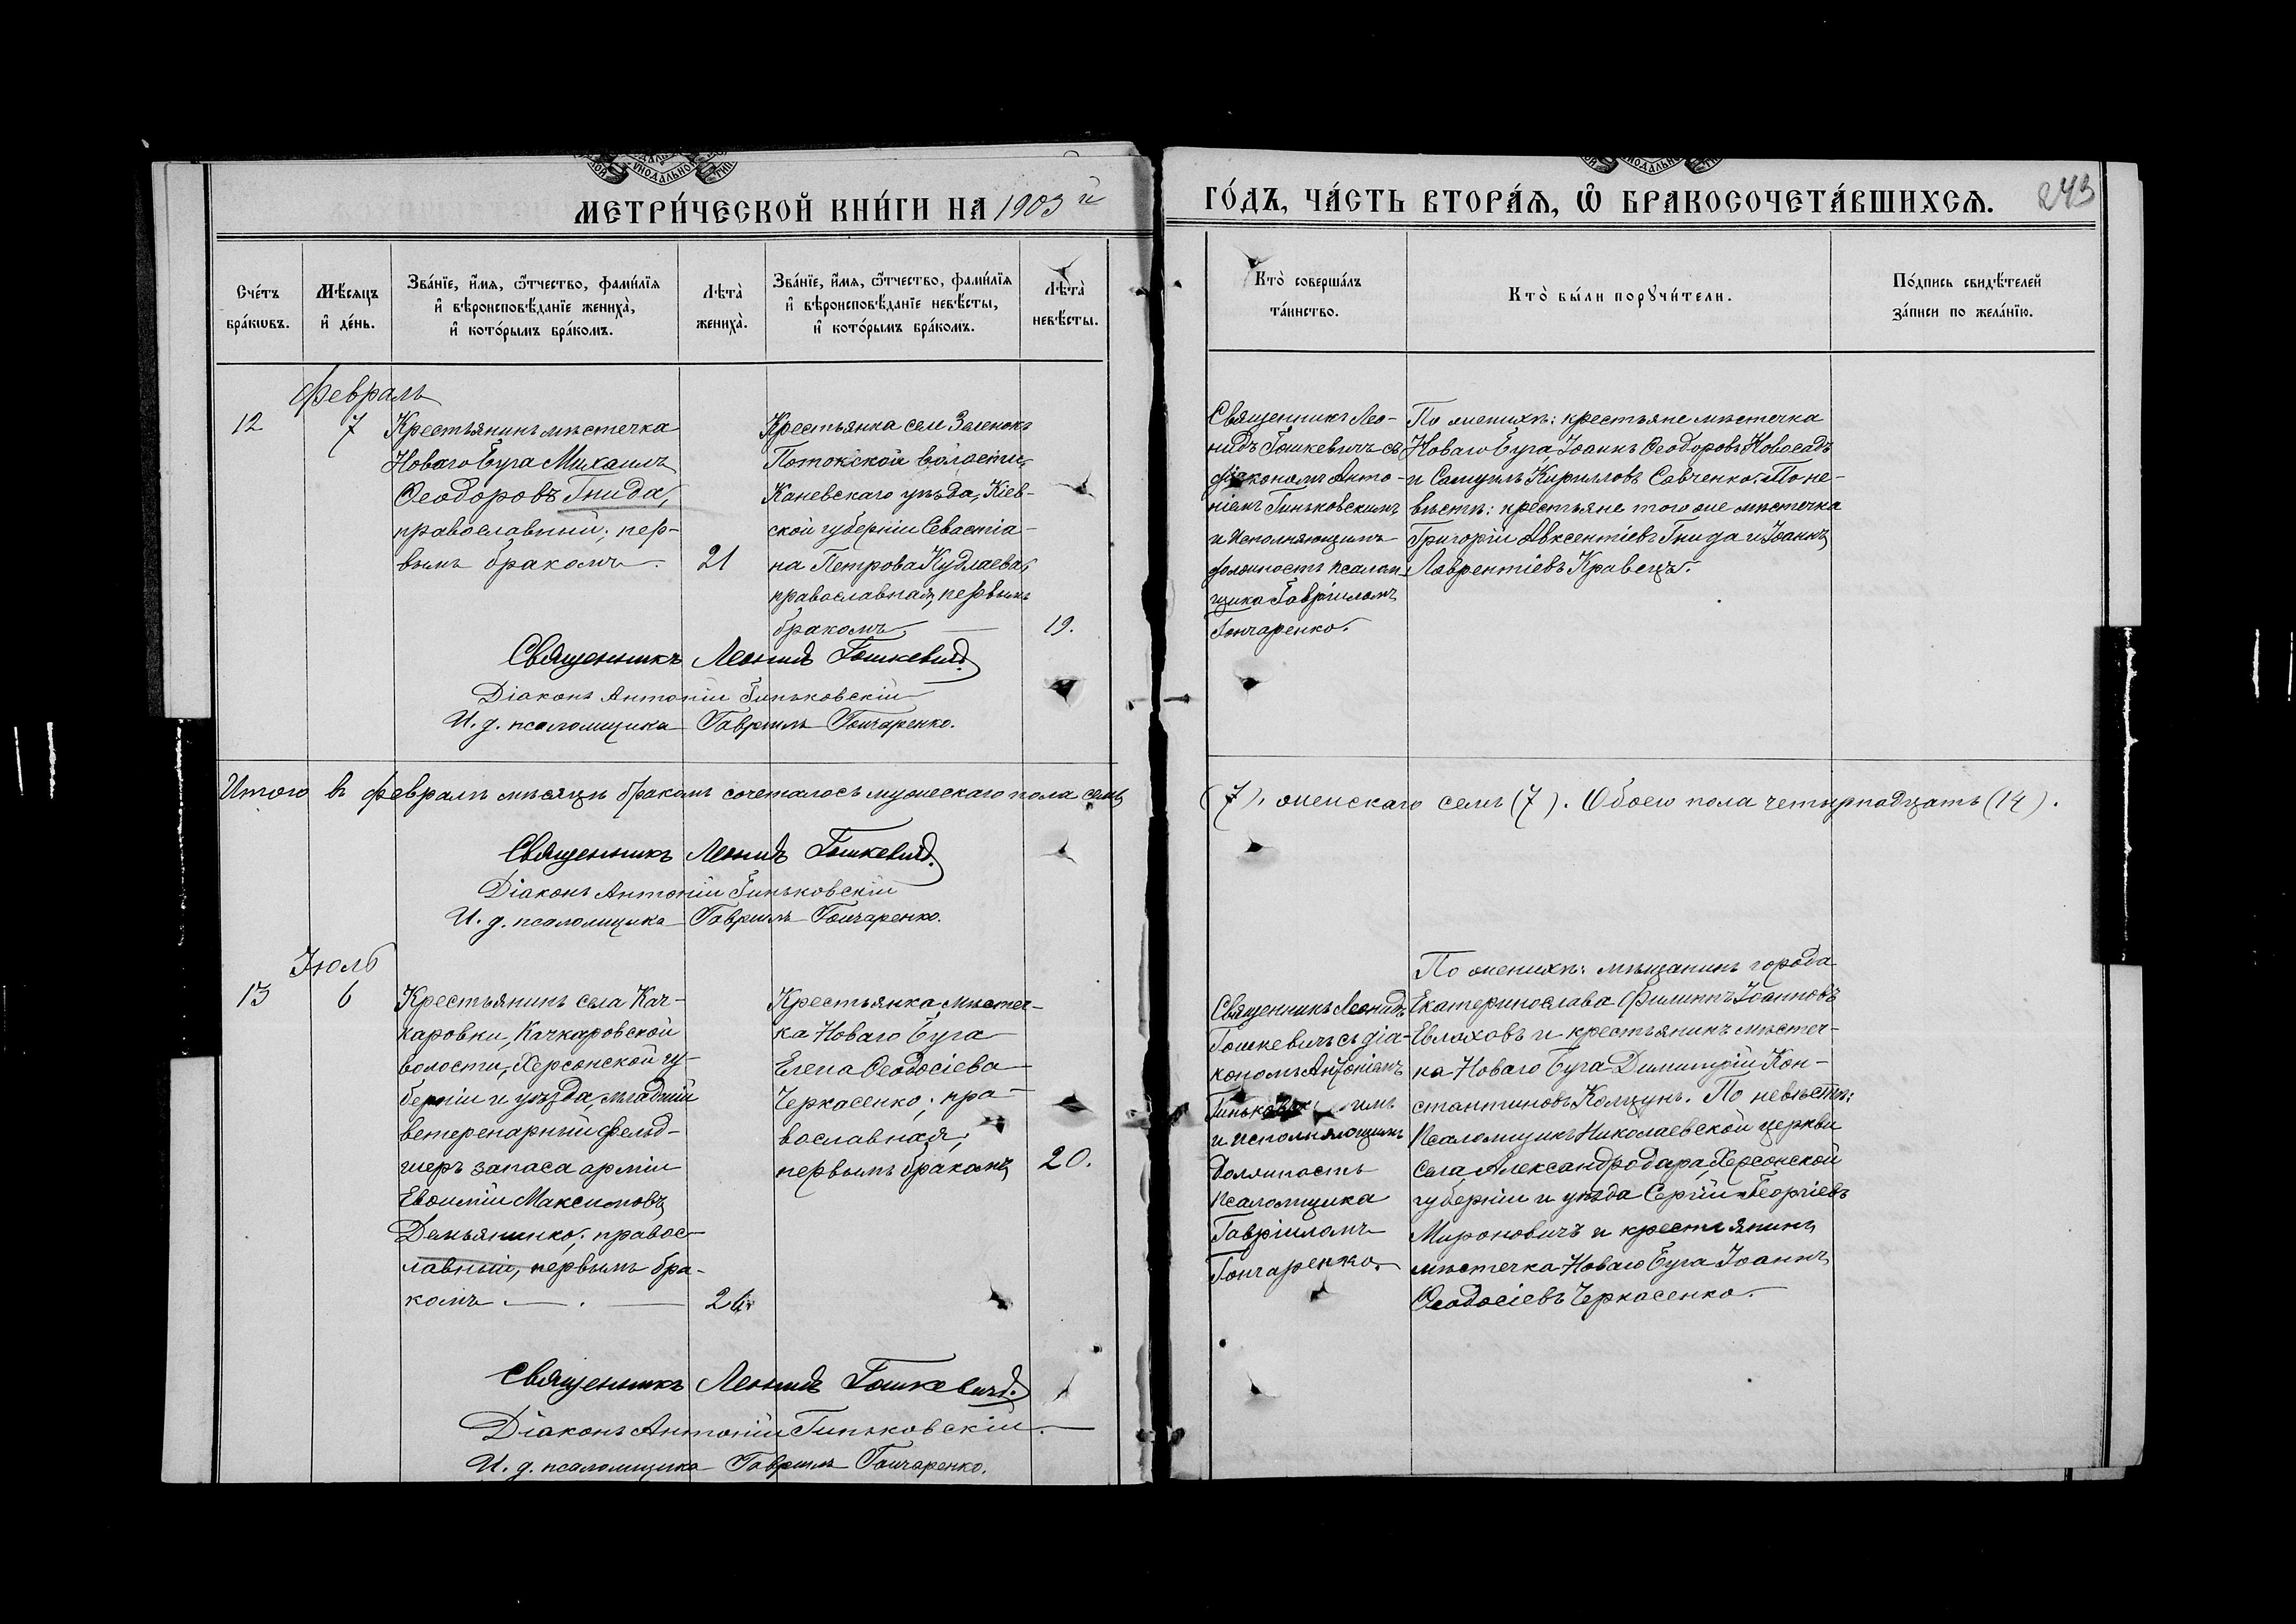 МЕТРИ́ЧЕСКОЙ КНИ́ГИ НА 1903й
ГО́ДЪ, ЧА́СТЬ ВТОРА́Я, Ѿ БРАКОСОЧЕТА́ВШИХСЯ.
243
Сче́тъ
бра́кѡвъ.
Мѣ́сяцъ
и҆ де́нь.
Зва́нїе, и҆́мя, ѻ҆́тчество, фами́лїя
и҆ вѣроисповѣ́данїе жениха̀,
и҆ кото́рымъ бра́комъ.
Лѣта̀
жениха̀.
Зва́нїе, и҆́мя, ѻ҆́тчество, фами́лїя
и҆ вѣроисповѣ́данїе невѣ́сты,
и҆ кото́рымъ бра́комъ.
Лѣта̀
невѣ́сты.
Кто̀ соверша́лъ
та́инство.
Кто̀ бы́ли порꙋчи́тели.
По́дпись свидѣ́телей
за́писи по жела́нїю.
Февраль
12
7
Крестьянинъ мѣстечка
Новаго Буга Михаилъ
Ѳеодоровъ Гнида,
православный; пер-
вымъ бракомъ.
21
Крестьянка села Зеленокъ
Потокской волости,
Каневскаго уѣзда, Кіев-
ской губерніи Севастіа-
на Петрова Кудлаева,
православная, первымъ
бракомъ
19.
Священникъ Лео-
нидъ Гошкевичъ съ
діакономъ Анто-
ніемъ Гиньковскимъ
и исполняющимъ
должность псалом-
щика Гавріиломъ
Гончаренко.
По женихѣ: крестьяне мѣстечка
Новаго Буга, Іоаннъ Ѳеодоровъ Новосадъ
и Самуилъ Кирилловъ Савченко. По не-
вѣстѣ: крестьяне того же мѣстечка
Григорій Авксентіевъ Гнида и Іоаннъ
Лаврентіевъ Кравецъ.
Священникъ Леонидъ Гошкевичъ.
Діаконъ Антоній Гиньковскій
И. д. псаломщика Гавріилъ Гончаренко.
Итого въ февралѣ мѣсяцѣ бракомъ сочеталось мужескаго пола семь
(7), женскаго семь (7). Обоего пола четырнадцать (14).
Священникъ Леонидъ Гошкевичъ.
Діаконъ Антоній Гиньковскій
И. д. псаломщика Гавріилъ Гончаренко.
Іюль
13
6
Крестьянинъ села Кач-
каровки, Качкаровской
волости, Херсонской гу-
берніи и уѣзда, младшій
ветеренарный фельд-
шеръ запаса арміи
Евѳимій Максимовъ
Демьяненко; правос-
лавный, первымъ бра-
комъ.
Крестьянка мѣстеч-
ка Новаго Буга
Елена Ѳеодосіева
Черкасенко; пра-
вославная;
первымъ бракомъ
20.
Священникъ Леонидъ
Гошкевичъ съ діа-
кономъ Антоніемъ
и исполняющимъ
должность
Псаломщика
Гавріиломъ
Гончаренко.
По женихѣ: мѣщанинъ города
Екатеринослава Филиппъ Іоанновъ
Евлаховъ и крестьянинъ мѣстеч-
ка Новаго Буга Димитрій Кон-
стантиновъ Колцунъ. По невѣстѣ:
Псаломщикъ Николаевской церкви
села Александродара, Херсонской
губерніи и уѣзда Сергій Георгіевъ
Мироновичъ и крестьянинъ
мѣстечка Новаго Буга Іоаннъ
Ѳеодосіевъ Черкасенко.
Священникъ Леонидъ Гошкевичъ.
Діаконъ Антоній Гиньковскій.
И. д. псаломщика Гавріилъ Гончаренко.